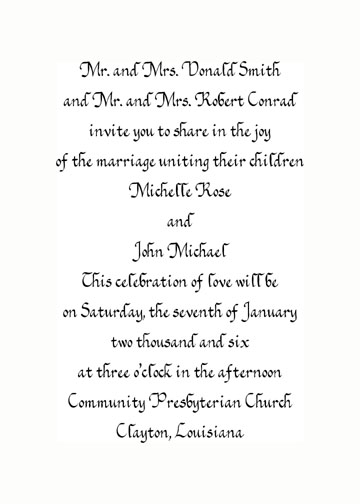 Mr. and Mrs. Donald Smith
and Mr. and Mrs. Robert Conrad
invite you to share in the joy
of the marriage uniting their children
Michelle Rose
and
John Michael
This celebration of love will be
on Saturday, the seventh of January
two thousand and six
at three o'clock in the afternoon
Community Presbyterian Church
Clayton, Louisiana